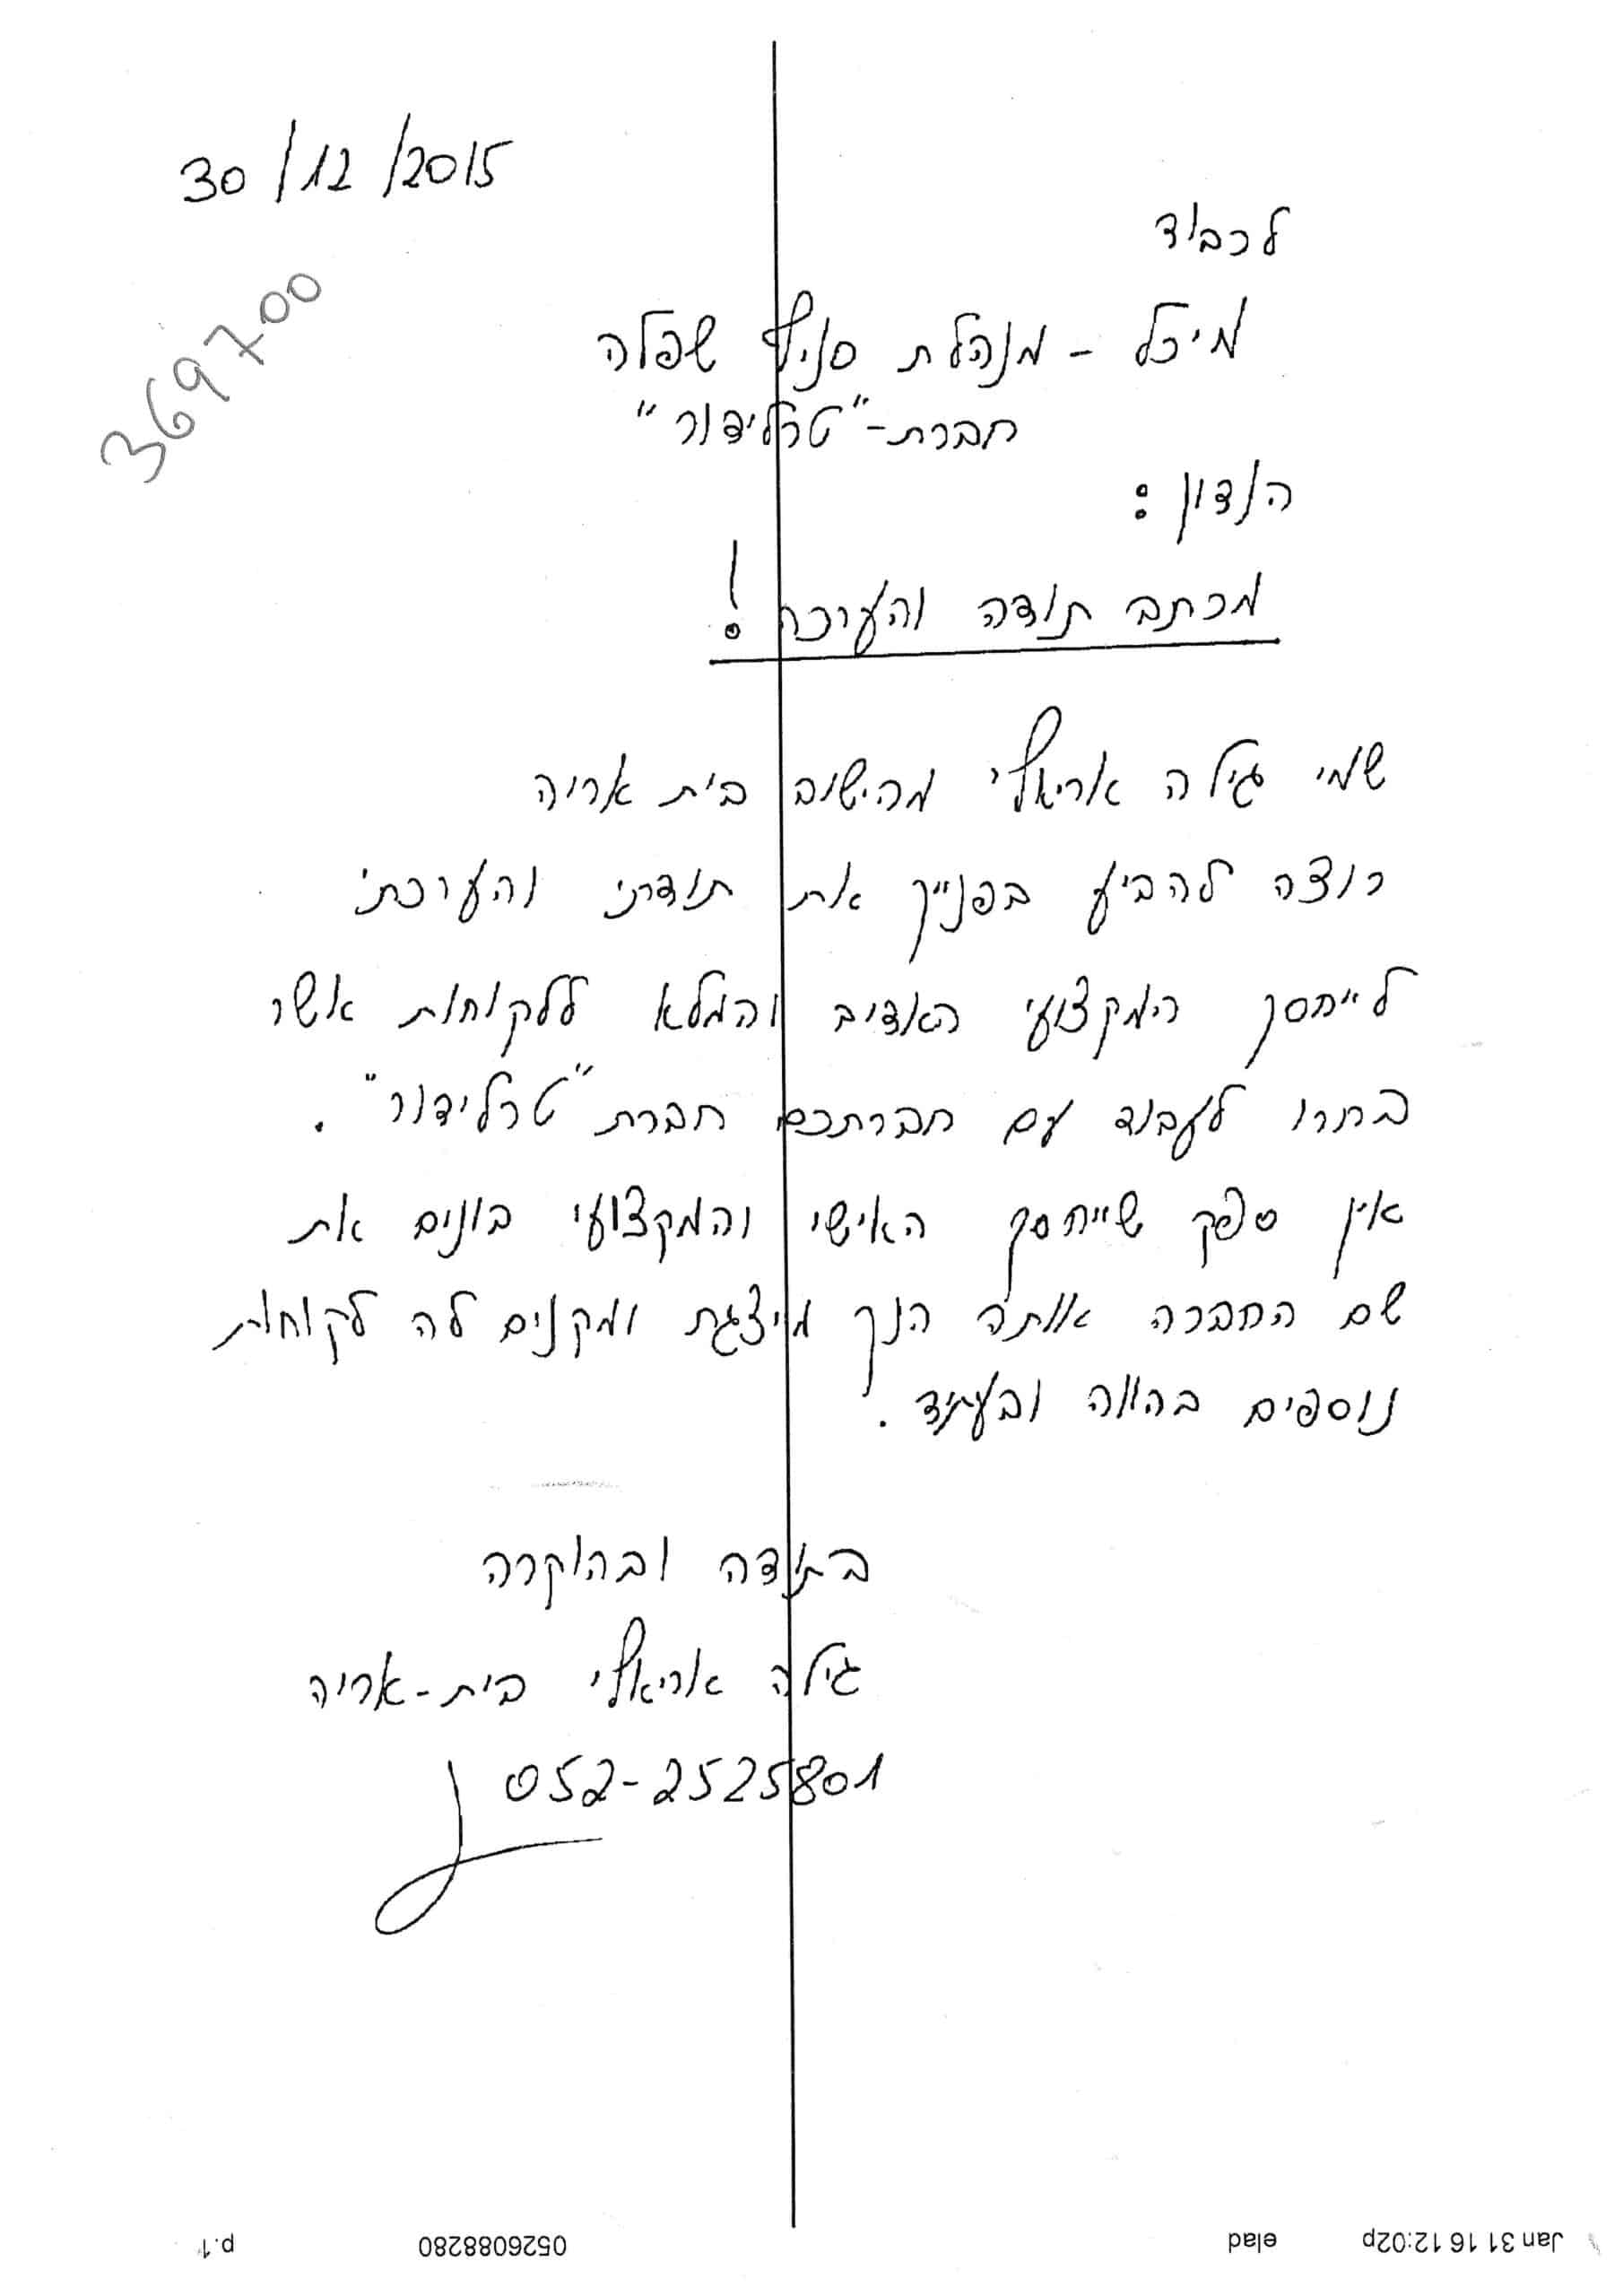 30/12/2015
369700
לכבוד
מיכל - מנהלת סניף שפלה
חברת - "טרלידור"
הנדון:
מכתב תודה והערכה!
שמי גילה אריאלי מהישוב בית אריה
רוצה להביע בפנייך את תודתי והערכתי
לייחסך המקצועי האדיב והמלא ללקוחות אשר
בחרו לעבוד עם חברתכם חברת "טרלידור".
אין ספק שייחסך האישי והמקצועי בונים את
שם החברה אותה הנך מייצגת ומקנים לה לקוחות
נוספים בהווה ובעתיד.
בתודה ובהוקרה
גילה אריאלי בית-אריה
052-2525801
Jan 31 16 12:02p elad 0526088280 p.1